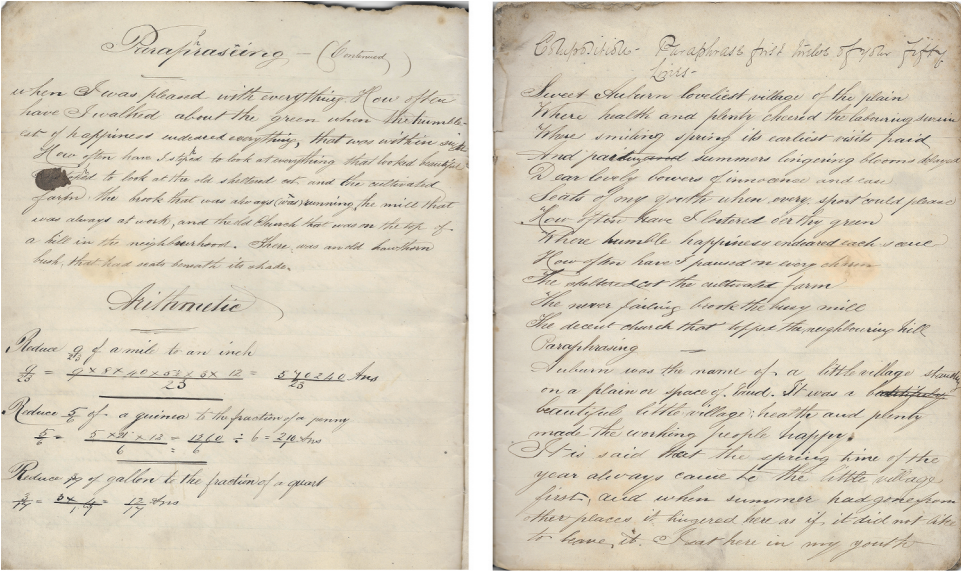 Paraphrasing - (Continued)
when I was pleased with everything. How often
have I walked about the green when the humble
cot of happiness endeared everything, that was within
How often have I stoped to look at everything that looked beautiful
to look at the old sheltered cot. and the cultivated
farm. the brook that was always running, the mill that
was always at work, and the old church that was on the top of
a hill in the neighbourhood. There was an old hawthorn
bush, that had seats beneath its shade.
Arithmetic
Reduce 9/23 of a mile to an inch
9/23 = 9 × 8 × 40 × 5½ × 3 × 12 / 23 = 570240 / 23 Ans
Reduce 5/6 of a guinea to the fraction of a penny
5/6 = 5 × 21 × 12 / 6 = 1260 / 6 ÷ 6 = 210 Ans
Reduce of gallon to the fraction of a quart
3/17 = 3 × 4 / 17 = 12/17 Ans
Composition - Paraphrase first twelve of your fifty
Lines -
Sweet Auburn loveliest village of the plain
Where health and plenty cheered the labouring swain
Where smiling spring its earliest visits paid
And parting summers lingering blooms delayed
Dear lovely bowers of innocence and ease
Seats of my youth when every sport could please
How often have I loitered oer thy green
Where humble happiness endeared each scene
How often have I paused on every charm
The sheltered cot the cultivated farm
The never failing brook the busy mill
The decent church that topped the neighbouring hill
Paraphrasing
Auburn was the name of a little village standing
on a plain or space of land. It was a
beautiful little village; health and plenty
made the working people happy.
It is said that the spring time of the
year always came to the little village
first, and when summer had gone from
other places it lingered here as if it did not like
to leave it. I sat here in my youth